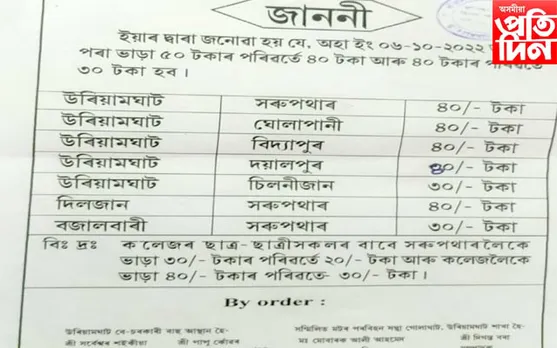 জাননী
অসমীয়া
প্ৰতিদিন
ইয়াৰ দ্বাৰা জনোৱা হয় যে, অহা ইং ০৬-১০-২০২২
পৰা ভাড়া ৫০ টকাৰ পৰিৱৰ্তে ৪০ টকা আৰু ৪০ টকাৰ পৰিৱৰ্তে
৩০ টকা হব ।
উৰিয়ামঘাট সৰুপথাৰ ৪০/- টকা
উৰিয়ামঘাট ঘোলাপানী ৪০/- টকা
উৰিয়ামঘাট বিদ্যাপুৰ ৪০/- টকা
উৰিয়ামঘাট দয়ালপুৰ ৪০/- টকা
উৰিয়ামঘাট চিলনীজান ৩০/- টকা
দিলজান সৰুপথাৰ ৪০/- টকা
বজালবাৰী সৰুপথাৰ ৩০/- টকা
বিঃ দ্ৰঃ কলেজৰ ছাত্ৰ-ছাত্ৰীসকলৰ বাবে সৰুপথাৰলৈকে
ভাড়া ৩০/- টকাৰ পৰিৱৰ্তে ২০/- টকা আৰু কলেজলৈকে
ভাড়া ৪০/- টকাৰ পৰিৱৰ্তে- ৩০/- টকা ।
By order :
উৰিয়ামঘাট বে-চৰকাৰী বাছ আস্থান হৈ- সন্মিলিত মটৰ পৰিবহন সন্থা গোলাঘাট, উৰিয়ামঘাট শাখা হৈ-
শ্ৰী সৰ্বেশ্বৰ শইকীয়া শ্ৰী পাপু কোঁৱৰ মাঃ মোবাৰক আলী আহমেদ শ্ৰী দিগন্ত বৰা